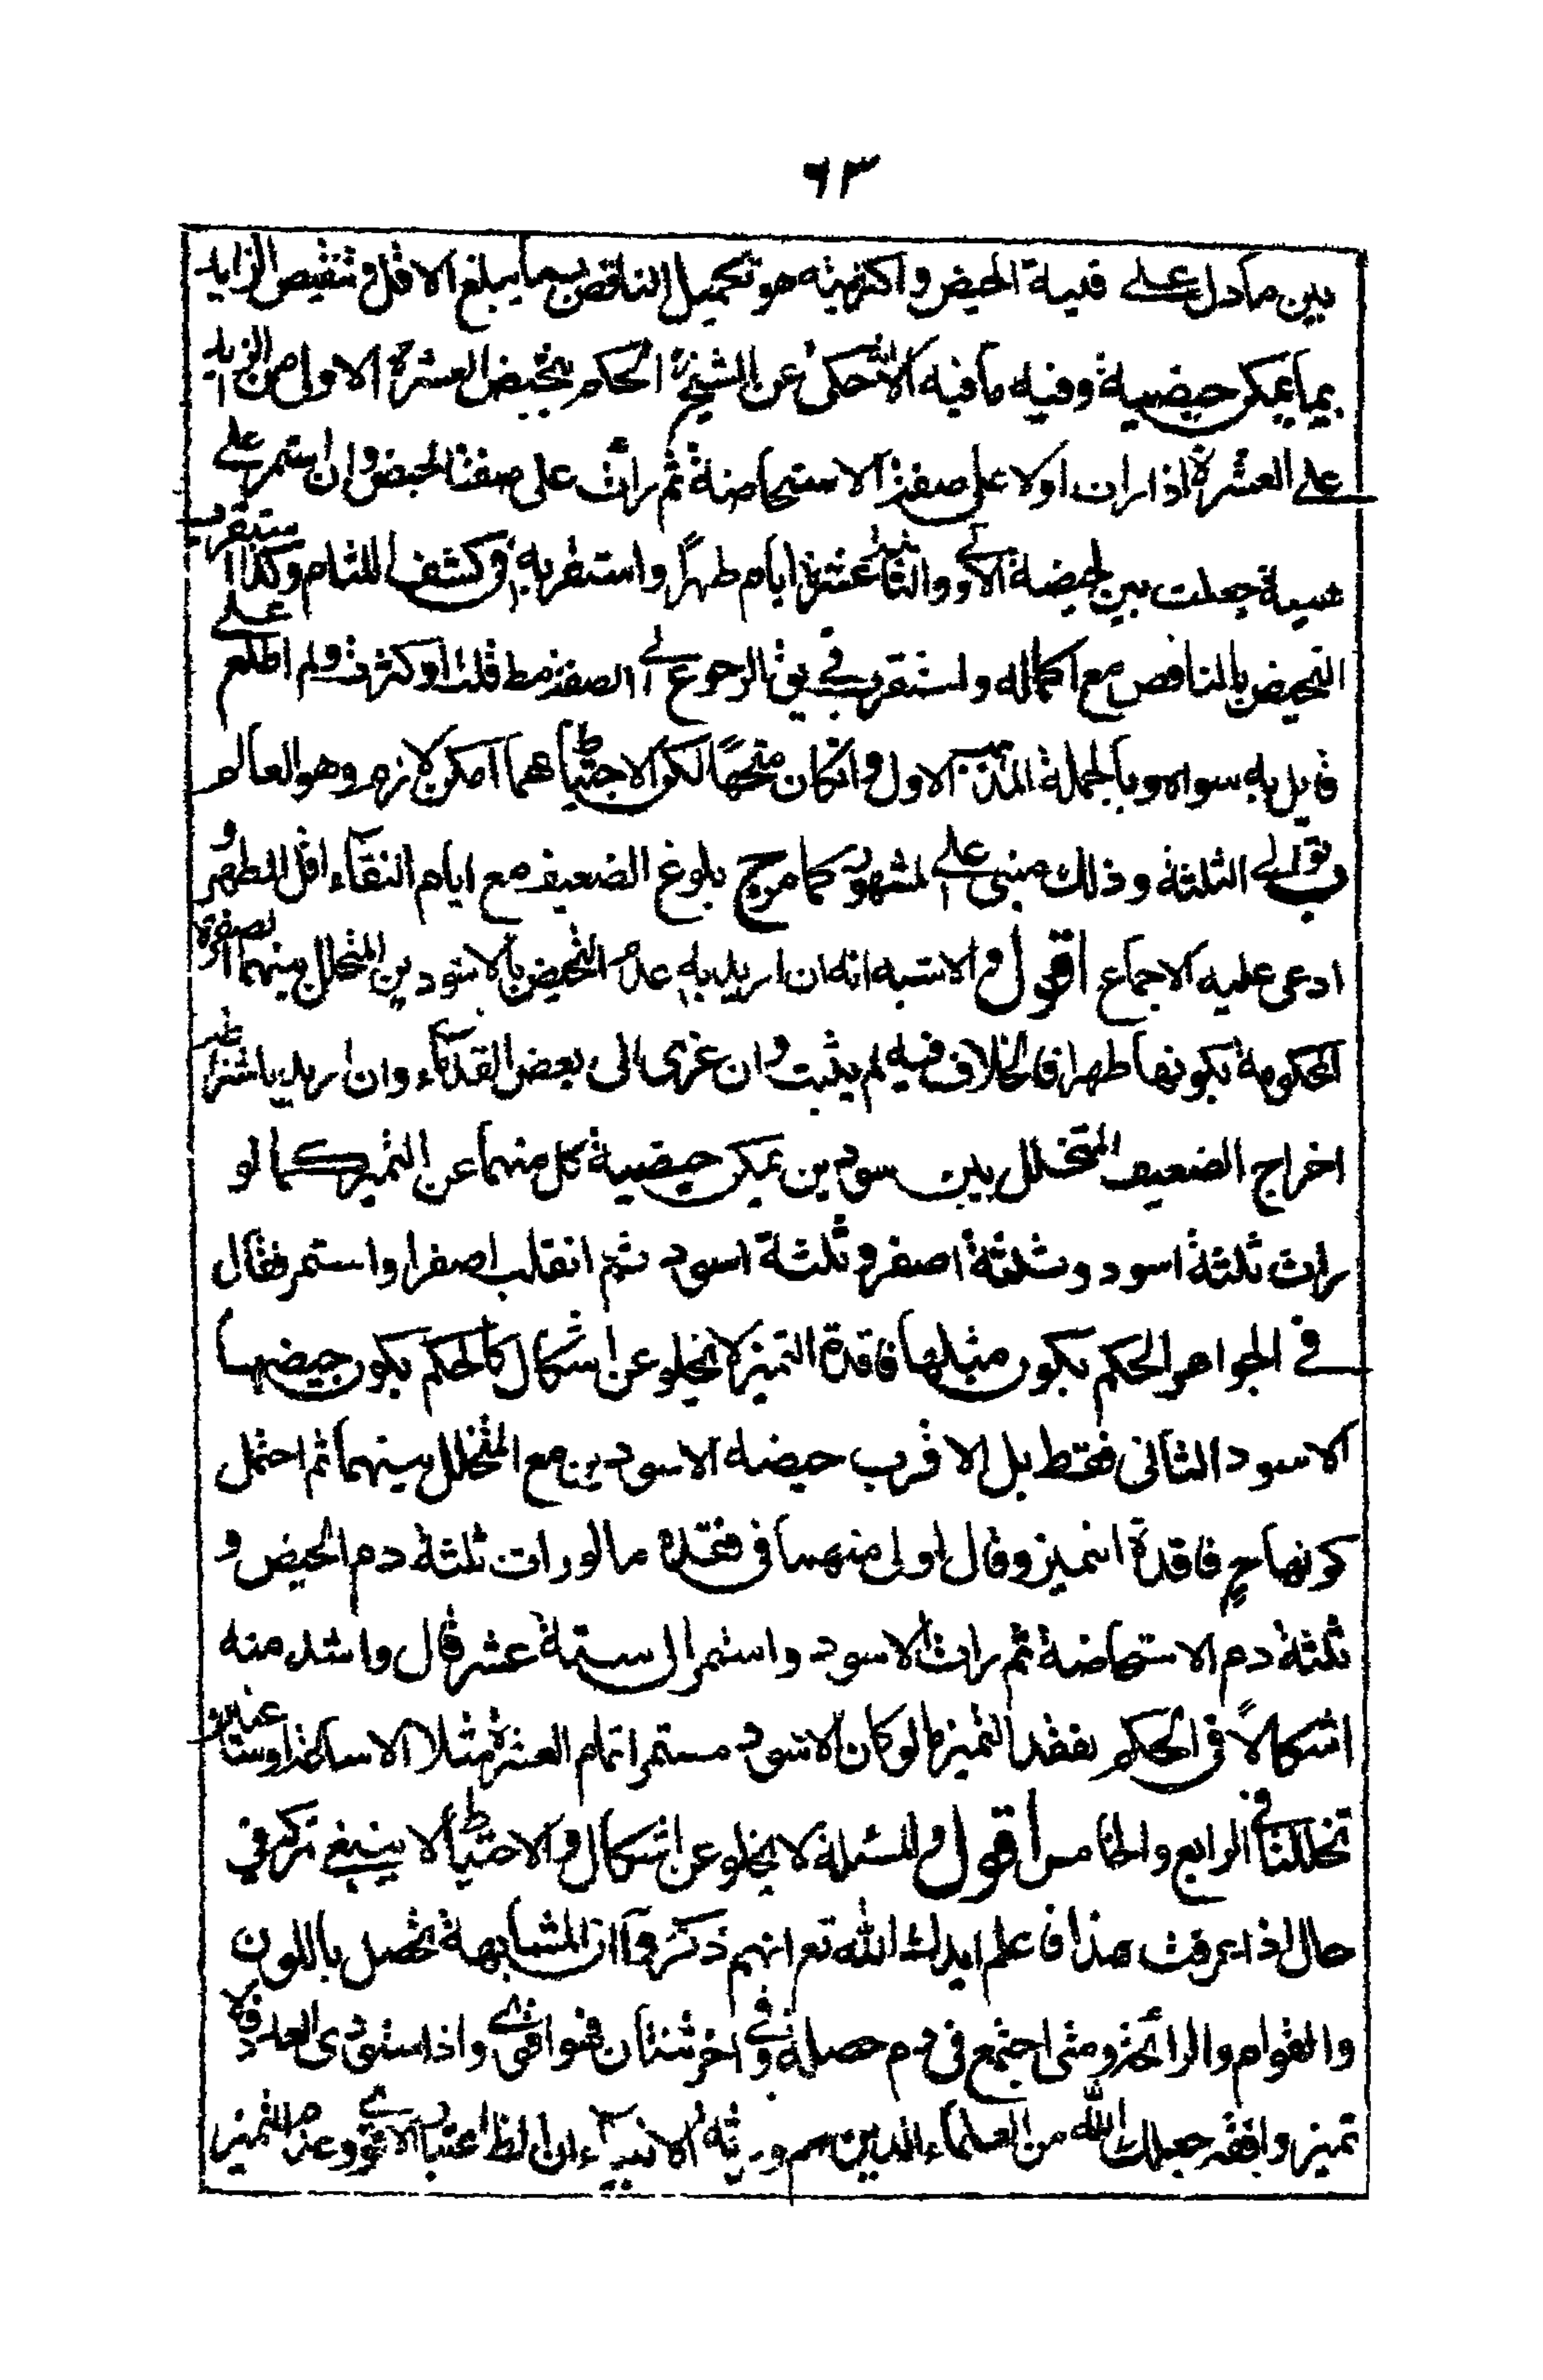 ٦٣
بين ما دل على قلية الحيض واكثريته هو تكميل الناقص بما يبلغ الاقل وتنقيص الزايد
بما يمكن حيضية وفيه ما فيه الثالث حكى عن الشيخ الحكم بتحيض العشرة الاولى من الزايد
على العشرة اذا رات اولا على صفة الاستحاضة ثم رأت على صفة الحيض وان استمر على
جعلت بين الحيضة الاولى والثانية عشرة ايام طهراً واستقر به في كشف اللثام وكذا استقرب
التحيض بالناقص مع اكماله واستقرب في يق الرجوع الى الصفة مط قلت او كثرت ولم اطلع على
قايل به سواه وبالجملة المذهب الاول وانكان متجهاً لكن الاحتياط مهما امكن لازم وهو العالم
توالى الثلثة وذلك مبنى على المشهور كما مر ج بلوغ الضعيف مع ايام النقاء اقل الطهر و
ادعى عليه الاجماع اقول والاشبه انه ان اريد به عدم التحيض بالاسودين المتخلل بينهما الصفرة
المحكومة بكونها طهرا فالخلاف فيه لم يثبت وان عزى الى بعض القدماء وان اريد باشتراطه
اخراج الضعيف المتخلل بين سودين يمكن حيضية كل منهما عن التميز كما لو
رات ثلثة اسود وثلثة اصفر وثلثة اسود ثم انقلب اصفرا واستمر فقال
في الجواهر الحكم بكون مثلها فاقدة التميز لا يخلو عن اشكال كالحكم بكون حيضها
الاسود الثانى فقط بل الاقرب حيضه الاسودين مع المتخلل بينهما ثم احتمل
كونها ح فاقدة التميز وقال اولى منهما فى فقده ما لو رات ثلثة دم الحيض و
ثلثة دم الاستحاضة ثم رات الاسود واستمر الى ستة عشر قال واشد منه
اشكالاً فى الحكم بفقد التميز ما لو كان الاسود مستمرا تمام العشرة مثلا الا ساعة او ساعتين
تخللتا في الرابع والخامس اقول والمسئلة لا يخلو عن اشكال والاحتياط لا ينبغي تركه في
حال اذا عرفت هذا فاعلم ايدك الله تع انهم ذكروا ان المشابهة تحصل باللون
والقوام والرائحة ومتى اجتمع فى دم خصلة وفي اخر ثنتان فهو اقوى واذا استوى العدد فلا
تميز وافقه جعلك الله من العلماء الذين هم ورثة الانبياء ان اعتبار الاقوى وعدم التميز